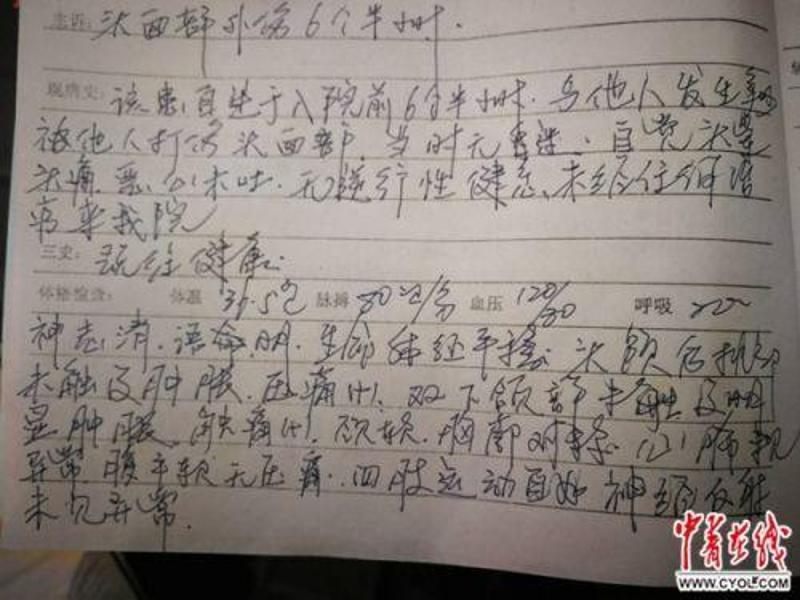 主诉：头面部外伤6个半小时.
现病史：该患自述于入院前6个半小时.与他人发生
被他人打伤头面部.当时无昏迷.自觉头晕
头痛.恶心未吐.无逆行性健忘.未经任何治
来我院
三史：既往健康.
体格检查： 体温 36.5℃ 脉搏 80次/分 血压 120/80 呼吸
神志清.语 明.生命体征平稳. 头
未触及肿胀.压痛(+).双下颌部未触及明
显肿胀.触痛(+).颈软.胸廓对称.心肺
异常.腹平软无压痛.四肢运动自如 神经反射
未见异常.
中青在线
WWW.CYOL.COM